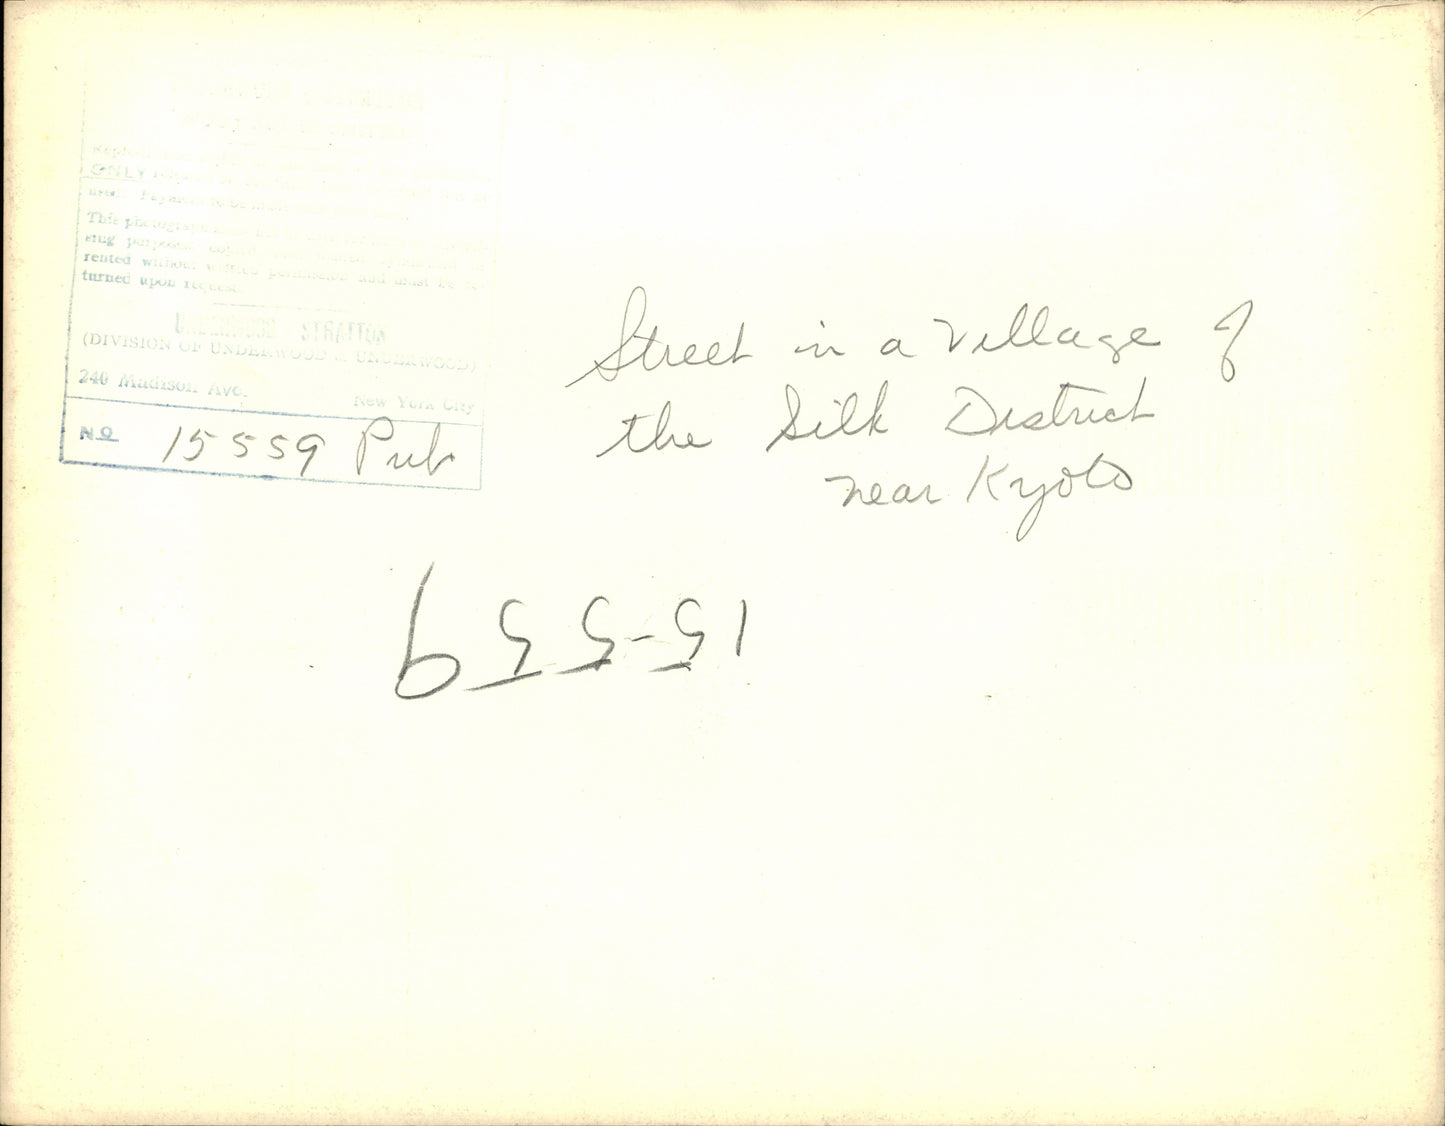 ONLY
used. Payment to be made
This photograph
rented without written permission and must be re-
turned upon request.
UNDERWOOD - STRATTON
(DIVISION OF UNDERWOOD & UNDERWOOD)
240 Madison Ave. New York City
No 15559 Pub
Street in a Village of
the Silk District
near Kyoto
15-559